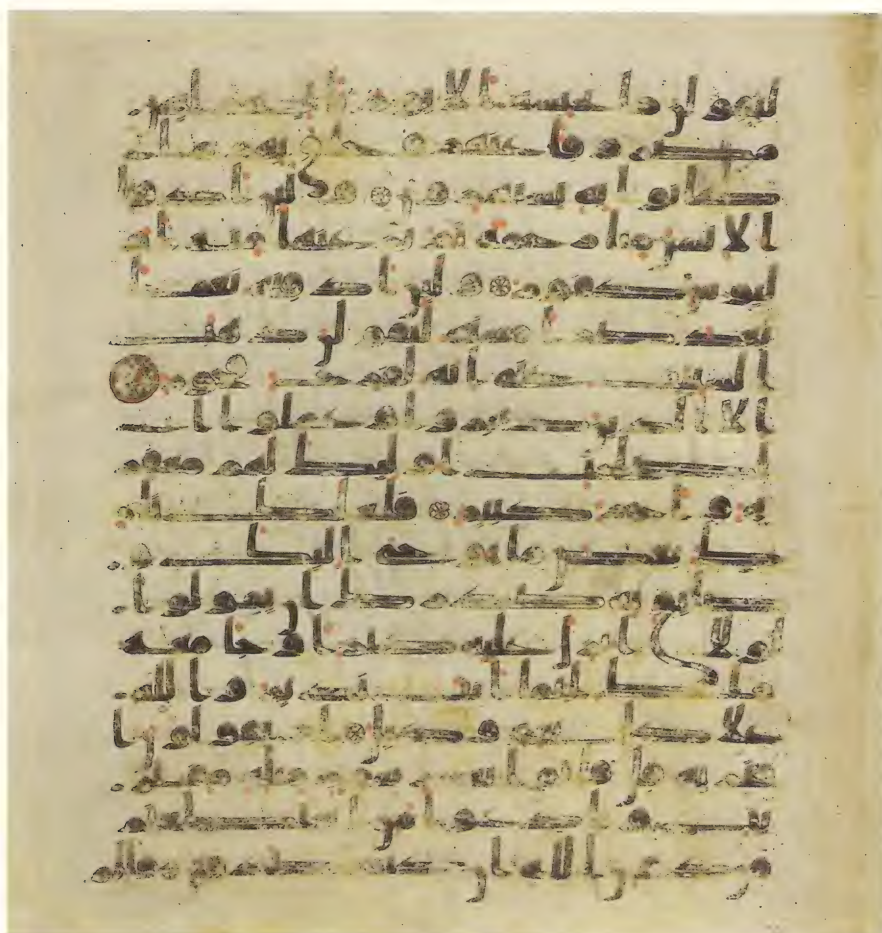 ليقولن ما يحبسه الا يوم ياتيهم ليس
مصروفا عنهم وحاق بهم ما
كانوا به يستهزون ولئن اذقنا
الانسن منا رحمة ثم نزعنها منه انه
ليوس كفور ولئن اذقنه نعما
بعد ضرا مسته ليقولن ذهب
السيات عنى انه لفرح فخور
الا الذين صبروا وعملوا ا
لصلحت اولئك لهم مغفر
ة واجر كبير فلعلك تار
ك بعض ما يوحى اليك و
ضايق به صدرك ان يقولوا
لولا انزل عليه كنز او جا معه
ملك انما انت نذير والله
على كل شى وكيل ام يقولون ا
فتريه قل فاتوا بعشر سور مثله مفتر
يت وادعوا من استطعتم
من دون الله ان كنتم صدقين فالم